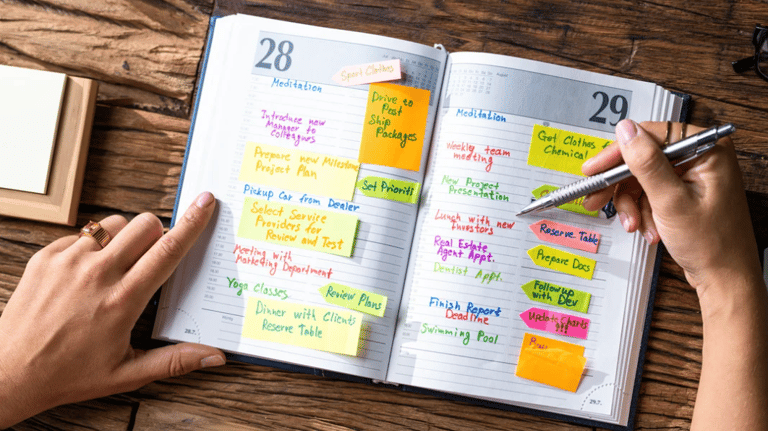 28
Sport Clothes
Meditation
Drive to
Post
Ship
Packages
Introduce new
Manager to
Colleagues
Prepare new Milestone
Project Plan
Set Prioriti
Pickup Car from Dealer
Select Service
Providers for
Review and Test
Meeting with
Marketing Department
Yoga Classes
Review Plans
Dinner with Clients
Reserve Table
29
Meditation
Get Clothes f
Chemical
Weekly team
meeting
New Project
Presentation
Lunch with new
Investors
Reserve Table
Real Estate
Agent Appt.
Prepare Docs
Dentist Appt.
Followup
with Dev
Finish Report
Deadline
Update Charts
Swimming Pool